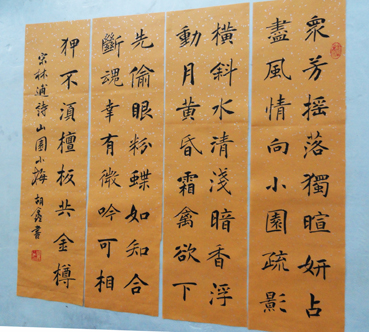 眾芳搖落獨暄妍占
盡風情向小園疏影
橫斜水清淺暗香浮
動月黃昏霜禽欲下
先偷眼粉蝶如知合
斷魂幸有微吟可相
狎不須檀板共金樽
宋林逋詩山園小梅 胡鑫書